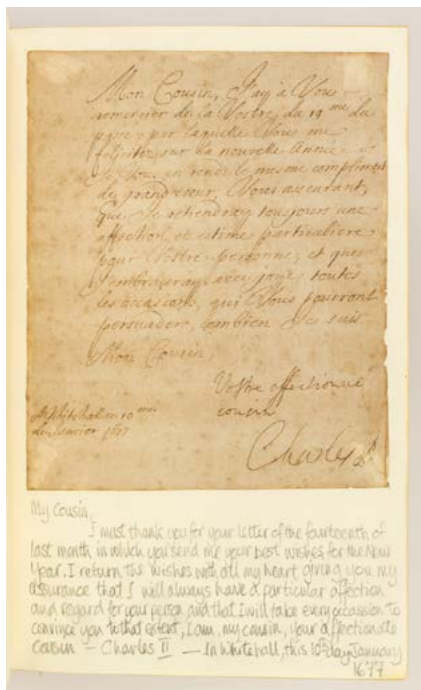 Mon Cousin, J'ay à Vous
remercier de la Vostre du 19 me du
passé par laquelle Vous me
felicitez sur la nouvelle Année.
Je Vous en rends le mesme compliment
de grand cœur, Vous asseurant,
que Je retiendray tousjours une
affection et estime particuliere
pour Vostre personne, et que
J'embrasseray avec joye toutes
les occasions, qui Vous pourront
persuader, combien Je suis
Mon Cousin,
Vostre affectionné
cousin
Whitehall ce 10 me
de Janvier 1677
Charles R
My Cousin,
I must thank you for your letter of the fourteenth of
last month in which you send me your best wishes for the New
Year. I return the wishes with all my heart giving you my
assurance that I will always have a particular affection
and regard for your person and that I will take every occassion to
convince you to that extent, I am, my cousin, your affectionate
Cousin – Charles II — In Whitehall, this 10th day January
1677